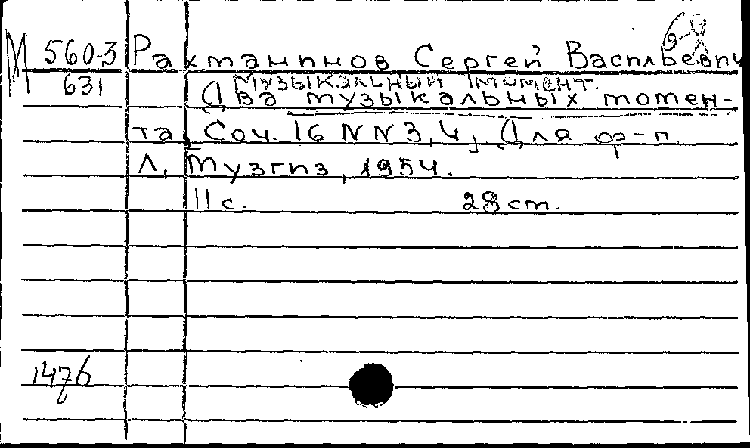 68
М 560-3 Рахманинов Сергей Васильевич
631 Музыкальный момент.
Два музыкальных момен-
та, Соч. 16 NN 3, 4, Для ф-п.
Л, Музгиз, 1954.
11 с. 28 cm.
1476